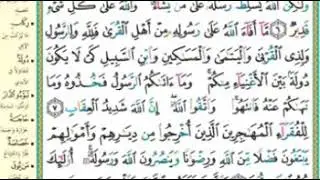 وَلَٰكِنَّ ٱللَّهَ يُسَلِّطُ رُسُلَهُۥ عَلَىٰ مَن يَشَآءُ ۚ وَٱللَّهُ عَلَىٰ كُلِّ شَىْءٍ
قَدِيرٌ ٦ مَّآ أَفَآءَ ٱللَّهُ عَلَىٰ رَسُولِهِۦ مِنْ أَهْلِ ٱلْقُرَىٰ فَلِلَّهِ وَلِلرَّسُولِ
وَلِذِى ٱلْقُرْبَىٰ وَٱلْيَتَٰمَىٰ وَٱلْمَسَٰكِينِ وَٱبْنِ ٱلسَّبِيلِ كَىْ لَا يَكُونَ
دُولَةًۢ بَيْنَ ٱلْأَغْنِيَآءِ مِنكُمْ ۚ وَمَآ ءَاتَىٰكُمُ ٱلرَّسُولُ فَخُذُوهُ وَمَا
نَهَىٰكُمْ عَنْهُ فَٱنتَهُوا۟ ۚ وَٱتَّقُوا۟ ٱللَّهَ ۖ إِنَّ ٱللَّهَ شَدِيدُ ٱلْعِقَابِ ٧
لِلْفُقَرَآءِ ٱلْمُهَٰجِرِينَ ٱلَّذِينَ أُخْرِجُوا۟ مِن دِيَٰرِهِمْ وَأَمْوَٰلِهِمْ
يَبْتَغُونَ فَضْلًا مِّنَ ٱللَّهِ وَرِضْوَٰنًا وَيَنصُرُونَ ٱللَّهَ وَرَسُولَهُۥٓ ۚ أُو۟لَٰٓئِكَ